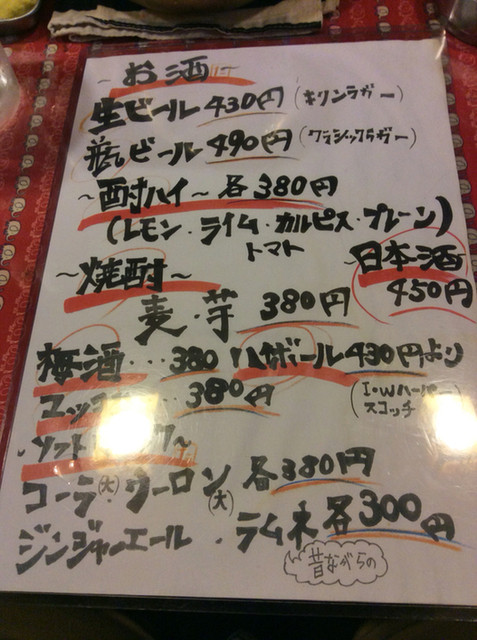 ~お酒~
生ビール 430円 (キリンラガー)
瓶ビール 490円 (クラシックラガー)
~酎ハイ~ 各380円
(レモン・ライム・カルピス・プレーン)
トマト
~焼酎~
麦・芋 380円
日本酒
450円
梅酒・・・380
ハイボール 430円より
(I.Wハーパー
スコッチ)
380円
コーラ(大) ウーロン(大) 各380円
ジンジャーエール・ラムネ 各300円
昔ながらの